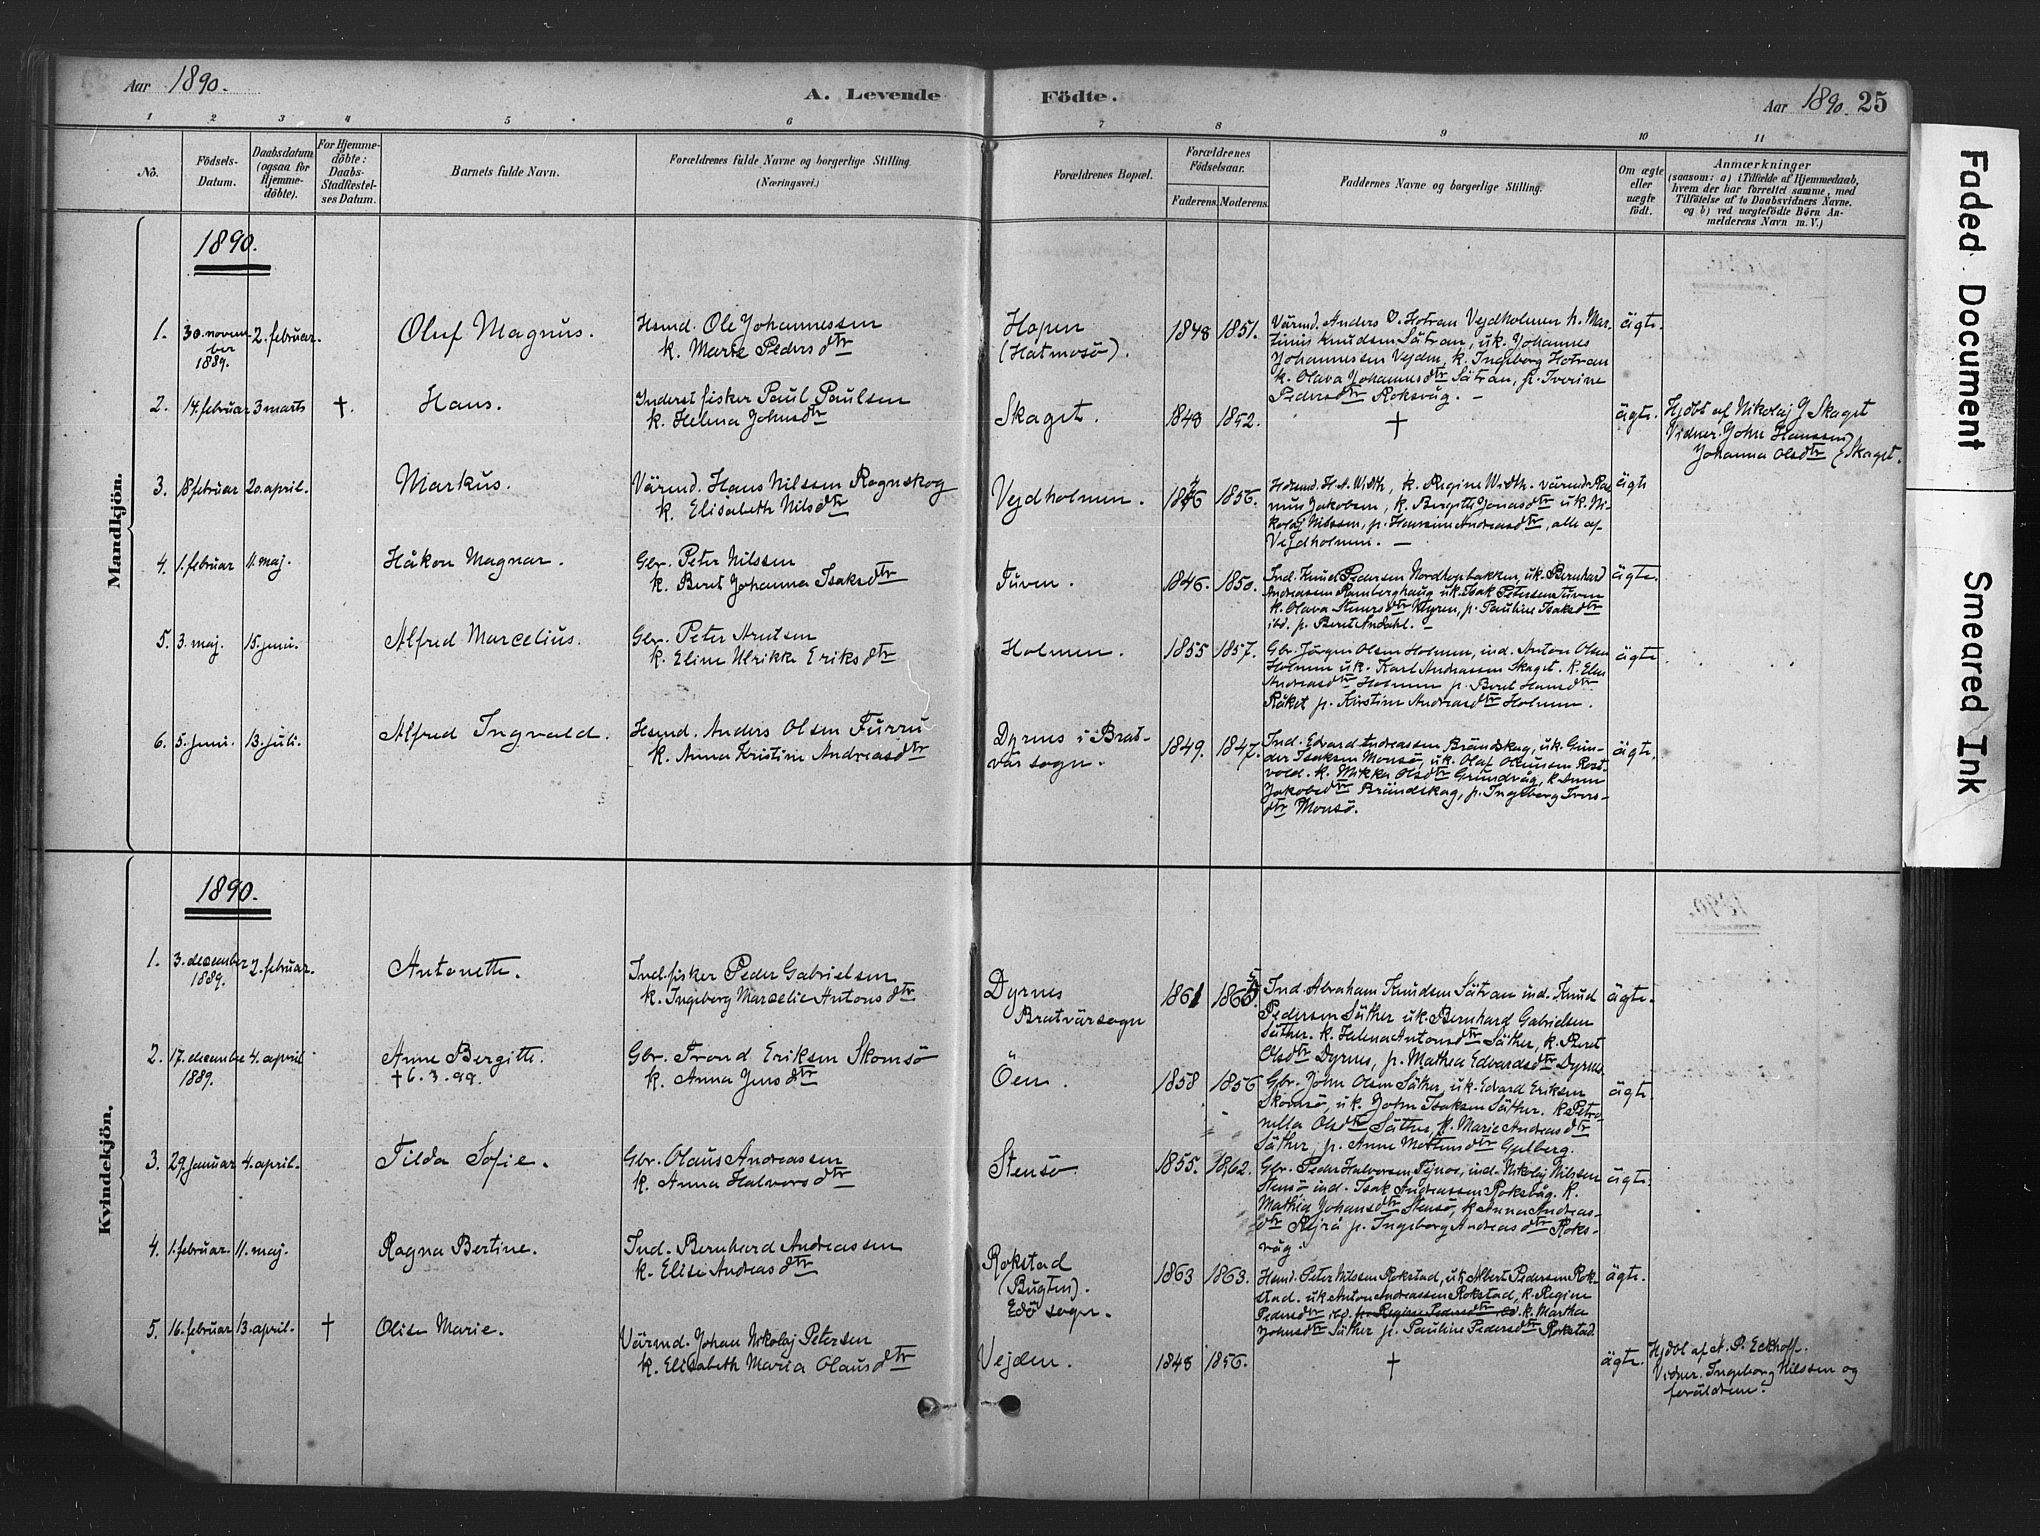 Aar 1890.
A. Levende
Födte.
Aar 1890. 25
1 2 3 4 5 6 7 8 9 10 11
No.
Födsels-
Datum.
Daabsdatum
(ogsaa for
Hjemme-
döbte).
For Hjemme-
döbte:
Daabs-
Stadfestel-
ses Datum.
Barnets fulde Navn.
Forældrenes fulde Navne og borgerlige Stilling.
(Næringsvei.)
Forældrenes Bopæl.
Forældrenes
Födselsaar.
Faderens. Moderens.
Faddernes Navne og borgerlige Stilling.
Om ægte
eller
uægte
födt.
Anmærkninger
(saasom: a) i Tilfælde af Hjemmedaab,
hvem der har forrettet samme, med
Tilföielse af to Daabsvidners Navne.
og b) ved uægtefödte Börn An-
melderens Navn m. V.)
Mandkjön.
1890.
1. 30. novem
ber
1889.
2. februar.
Oluf Magnus.
Hsmd. Ole Johannessen
k. Marie Pedersdtr
Hopen
(Hatmosö).
1848 1851.
Värmd. Anders O. Hotran Vejdholmen h. Mar-
tinus Knudsen Sätran, uk. Johannes
Johannessen Vejden, k. Ingeborg Hotran
k. Olava Johannesdtr Sätran, p. Iverine
Pedersdtr Roksvåg. -
ägte.
2. 14. februar 3 marts †.
Hans.
Inderst fisker Paul Paulsen
k. Helena Johnsdtr
Skaget.
1848 1852.
†
ägte.
Hjdbt af Nikolaj J Skaget
Vidner. John Hanssen
Johanna Olsdtr } Skaget.
3. 18 februar 20. april.
Markus.
Värmd. Hans Nilssen Rognskog
k. Elisabeth Nilsdtr
Vejdholmen.
1856.
Hdsmd. H. A. Wirth, k. Regine Wirth. värmd Ras
mus Jakobsen, k. Bergitte Jonasdtr uk. Ni-
kolaj Nilssen, p. Hansine Andreasdtr, alle af
Vejdholmen. -
ägte
4. 1. februar 11. maj.
Håkon Magnar.
Gbr. Peter Nilssen
k. Beret Johanna Isaksdtr
Tuven.
1846. 1850.
Ind. Knud Pedersen Nordhopbakken, uk. Bernhard
Andreassen Ramberghaug uk. Isak Petersen Tuven
k. Olava Steversdtr Myren, p. Pauline Isaksdtr
ibd. p. Beret Andahl. -
ägte.
5. 3. maj. 15. juni.
Alfred Marcelius.
Gbr. Peter Arntsen
k. Eline Ulrikke Eriksdtr
Holmen.
1855 1857.
Gbr. Jörgen Olsen Holmen, ind. Anton Olsen
Holmen uk. Karl Andreassen Skaget. k. Elen
Andreasdtr Holmen p. Beret Hansdtr
Råket p. Kirstine Andreasdtr Holmen.
ägte
6. 5. juni. 13. juli.
Alfred Ingvald.
Hsmd. Anders Olsen Furru
k. Anna Kristine Andreasdtr
Dyrnes i Brat-
vär sogn.
1849. 1847.
Ind. Edvard Andreassen Brändskag, uk. Gun-
der Isaksen Monsö, uk. Olaf Olaussen Rost-
vold. k. Mikka Olsdtr Grundvåg, k. Anne
Jakobsdtr Brändskag, p. Ingeborg Ivers-
dtr Monsö.
ägte.
Kvindekjön.
1890.
1. 3. december
1889.
2. februar.
Antonette.
Ind. fisker Peder Gabrielsen
k. Ingeborg Marcelie Antonsdtr
Dyrnes
Bratvärsogn
1861
Ind. Abraham Knudsen Sätran ind. Knud
Pedersen Säther uk. Bernhard Gabrielsen
Säther. k. Halena Antonsdtr Säther, k. Beret
Olsdtr Dyrnes, p. Mathea Edvardsdtr Dyrnes
ägte.
2. 17. decembe
1889.
4. april
Anne Bergitte.
† 6. 3. 99.
Gbr. Trond Eriksen Skomsö
k. Anna Jensdtr
Öen.
1858 1856
Gbr. John Olsen Säther, uk. Edvard Eriksen
Skomsö, uk. John Isaksen Säther. k. Petro
nella Olsdtr Säther, k. Marie Andreasdtr
Säther, p. Anne Mortensdtr Gulberg.
ägte.
3. 29 januar 4. april.
Tilda Sofie.
Gbr. Olaus Andreassen
k. Anna Halvorsdtr
Stensö
1855. 1862.
Gbr. Peder Halvorsen Tejnos, ind. Nikolaj Nilssen
Stensö ind. Isak Andreassen Roksvåg. k.
Mathea Johansdtr Stensö, k. Anna Andreas-
dtr Rejrå p. Ingeborg Andreasdtr Roks-
våg.
ägte.
4. 1. februar. 11. maj.
Ragna Bertine.
Ind. Bernhard Andreassen
k. Elise Andreasdtr
Rokstad
(Bugten).
Edö sogn.
1863 1863.
Hsmd. Peter Nilssen Rokstad, uk. Albert Pedersen Rok-
stad. uk. Anton Andreassen Rokstad, k. Regine
Pedersdtr ibd. k. Regine Pedersdtr ibd. k. Martha
Johnsdtr Säther p. Pauline Pedersdtr Rokstad
ägte.
5. 16. februar 13. april. †
Olise Marie.
Värmd. Johan Nikolaj Petersen
k. Elisabeth Maria Olausdtr
Vejden.
1848 1856.
†
ägte.
Hjdbt af N. P. Eckhoff.
Vidner. Ingeborg Nilssen og
forældrene.
Faded Document Smeared Ink